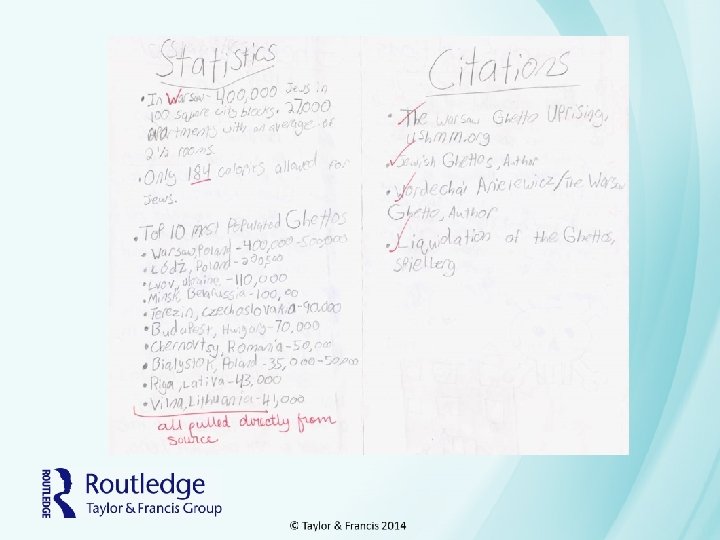 Statistics
• In Warsaw - 400,000 Jews in
100 square city blocks. 27,000
apartments with an average of
2 1/2 rooms.
• Only 184 calories allowed for
Jews.
• Top 10 most Populated Ghettos
• Warsaw, Poland - 400,000-500,000
• Łódź, Poland -
• Lvov, Ukraine - 110,000
• Minsk, Belarussia - 100,
• Terezin, Czechoslovakia - 90,000
• Budapest, Hungary - 70,000
• Chernovtsy, Romania - 50,
• Bialystok, Poland - 35,000-50,000
• Riga, Lativa - 43,000
• Vilna, Lithuania - 41,000
all pulled directly from
source
Citations
• The Warsaw Ghetto Uprising,
ushmm.org
• Jewish Ghettos, Author
• Mordechai Anielewicz/The Warsaw
Ghetto, Author
• Liquidation of the Ghettos,
Spielberg
ROUTLEDGE
Routledge
Taylor & Francis Group
© Taylor & Francis 2014